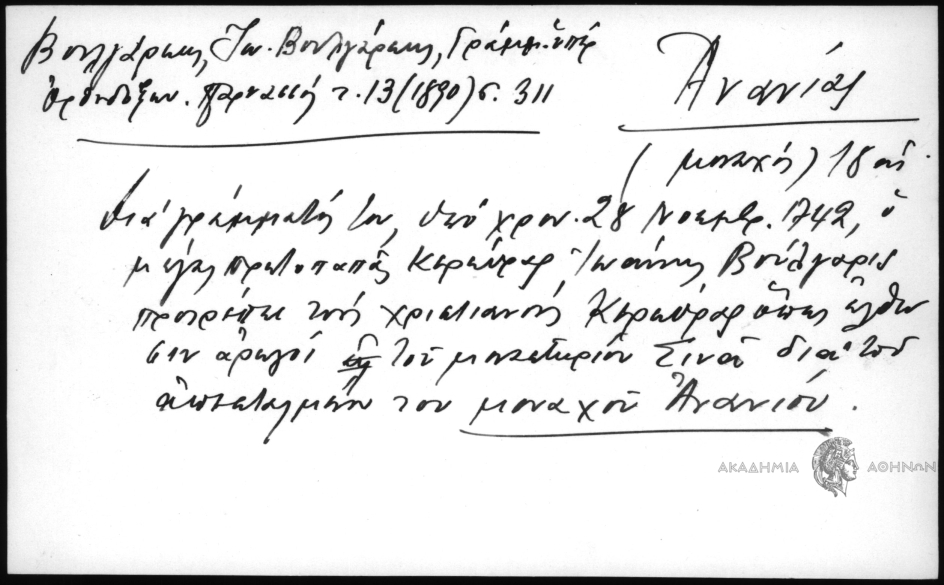 Βουλγάρεως, Ἰω. Βουλγάρεως, Γράμμ. ὑπέρ
ὀρθοδόξων. Παρνασσός τ. 13 (1890) σ. 311
Ἀνανίας
(μοναχός) 18 αἰ.
Διά γράμματός του, ὑπό χρον. 28 Νοεμβρ. 1742, ὁ
μέγας πρωτοπαπᾶς Κερκύρας Ἰωάννης Βούλγαρις
προτρέπει τούς χριστιανούς Κερκύρας ὅπως ἔλθω
σιν ἀρωγοί τοῦ μοναστηρίου Σινᾶ διά τοῦ
ἀπεσταλμένου του μοναχοῦ Ἀνανίου.
ΑΚΑΔΗΜΙΑ ΑΘΗΝΩΝ